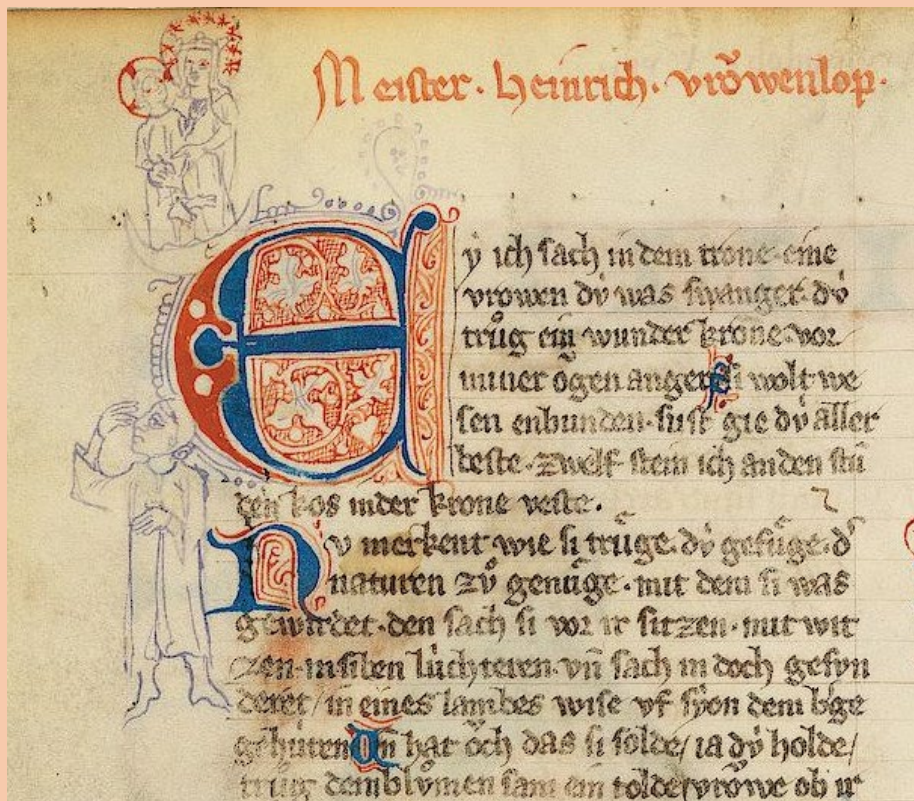 Meister · heinrich · vrŏwenlop ·
Eẏ ich sach in dem trone · eine
vrowen dẏ was swanger · dẏ
trůg ein wunder krone · vor
miner ogen anger Si wolt we
sen enbunden · sust gie dẏ aller
beste · zwelf stein ich an den stū
den kos inder krone veste ·
Nv merkent wie si trůge · dẏ gefůge · d'
naturen zů genůge · mit dem si was
gewurdet · den sach si vor ir sitzen · mit wit
zen · in siben lůchteren · vn̄ sach in doch gesvn
deret / in eines lambes wise vf sẏon dem b'ge
gehůren Vn̄ hat ŏch das si solde / ia dẏ holde /
trůg dem blůmen sam ein tolde / vrŏwe ob ir